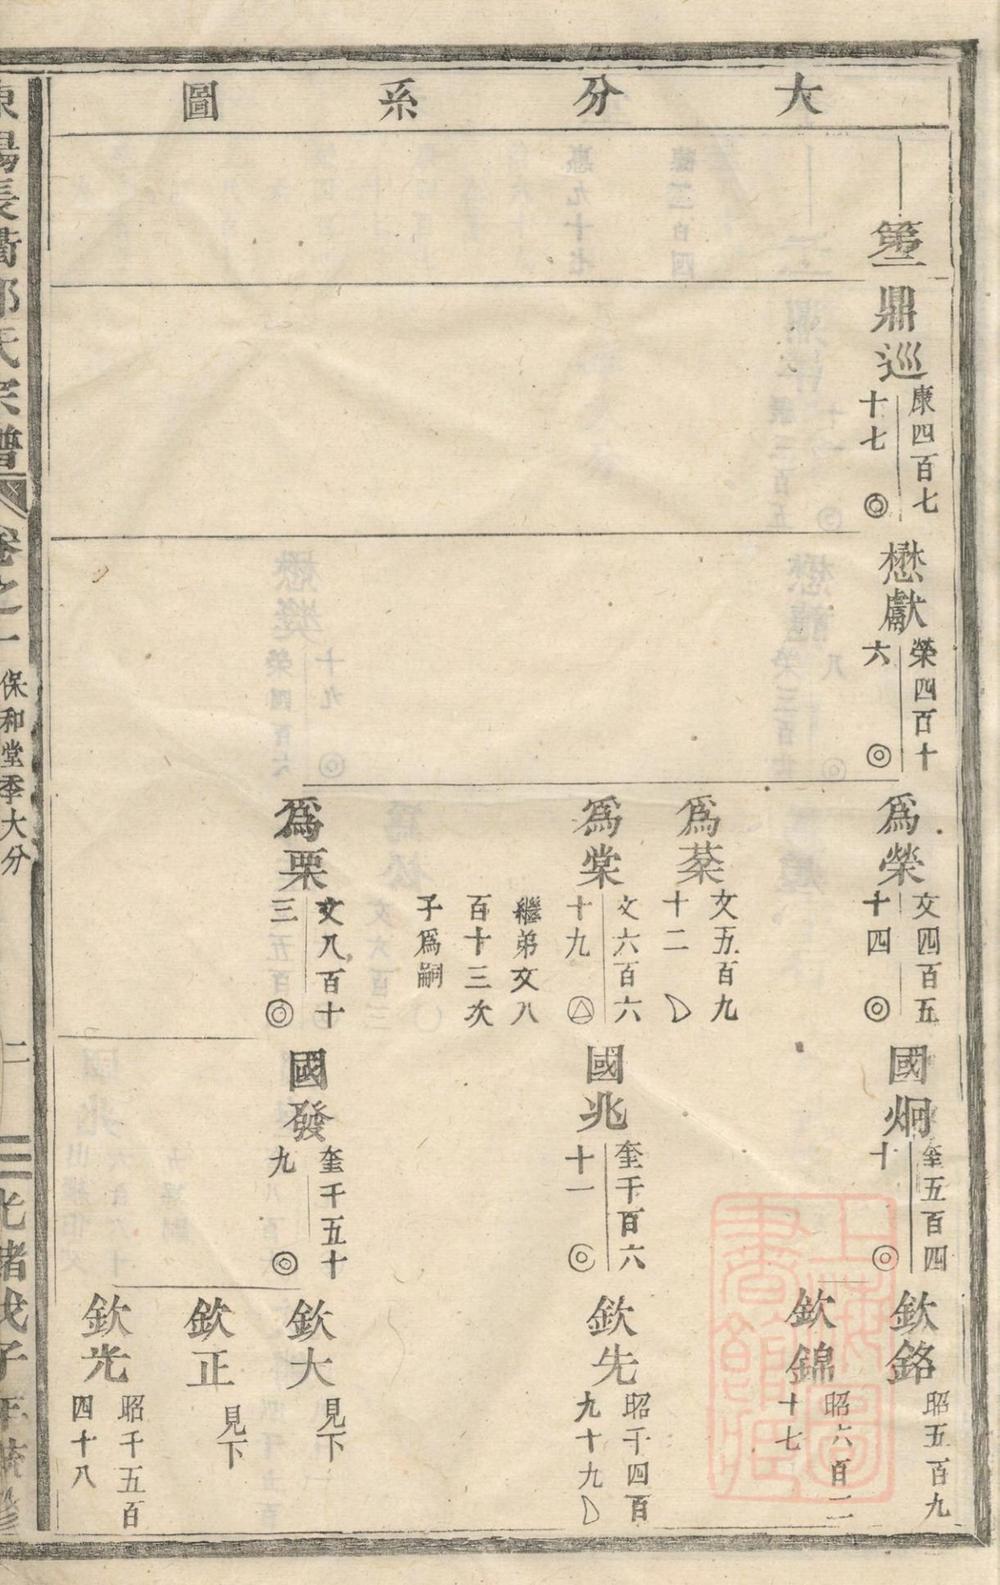 大分系圖
第二
鼎巡
康四百七
十七
懋獻
榮四百十
六
爲榮
文四百五
十四
爲棻
文五百九
十二
爲棠
文六百六
十九
繼弟文八
百十三次
子爲嗣
爲栗
文八百十
三
國炯
奎五百四
十
國兆
奎千百六
十一
國發
奎千五十
九
欽銘
昭五百九
欽錦
昭六百二
十七
欽先
昭千四百
九十九
欽大
見下
欽正
見下
欽光
昭千五百
四十八
氏宗譜
卷之一
保和堂季大分
二
光緒戊子年
上海圖書館藏